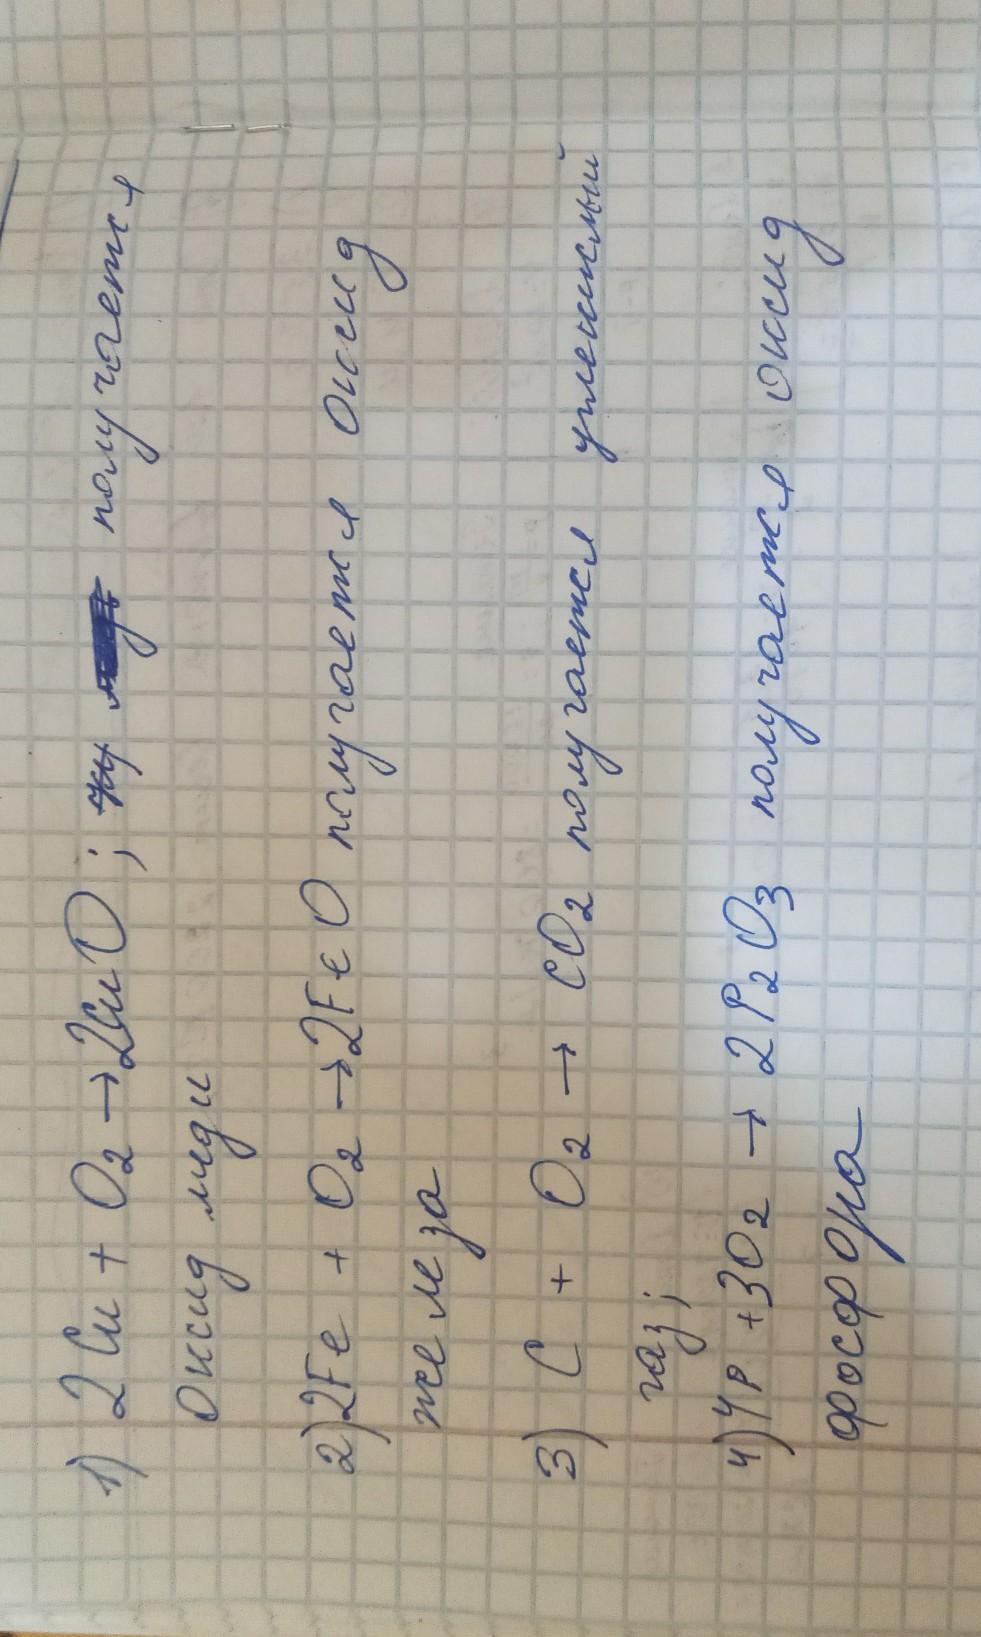 1) 2Cu + O₂ → 2CuO ; получается
Оксид меди
2) 2Fe + O₂ → 2FeO получается Оксид
железа
3) C + O₂ → CO₂ получается углекислый
газ;
4) 4P + 3O₂ → 2P₂O₃ получается оксид
фосфора